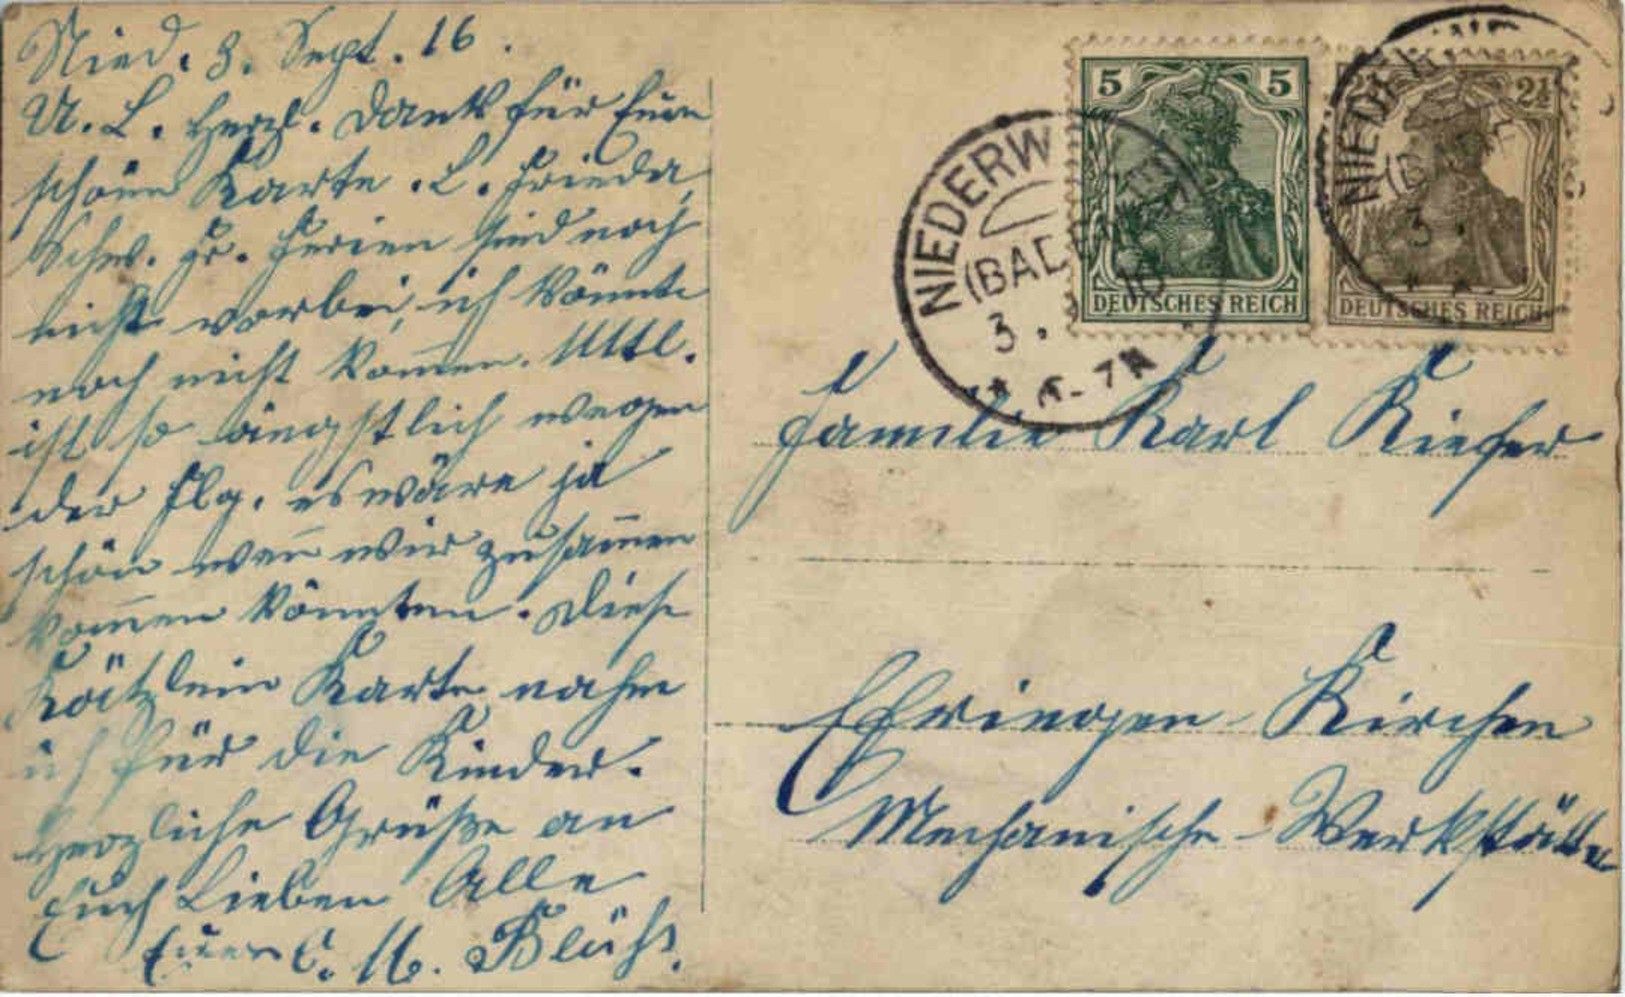 Nied. 3. Sept. 16.
U. L. Herzl. Dank für Eure
schöne Karte. L. Frieda,
Schw. Fr. Ferien sind noch
nicht vorbei, ich könnte
noch nicht kom̄en.
ist so ängstlich wegen
der Flg. es wäre ja
schön wen̄ wir zusam̄en
kom̄en könnten. Diese
Kätzlein Karte nahm
ich für die Kinder.
Herzliche Grüße an
Euch Lieben Alle
Eure
5 5
DEUTSCHES REICH
2½
DEUTSCHES REICH
NIEDERW
(BADEN)
3. 16
6-7N
NIEDERW
3.
Familie Karl Kiefer
Efringen-Kirchen
Mechanische-Werkstätte